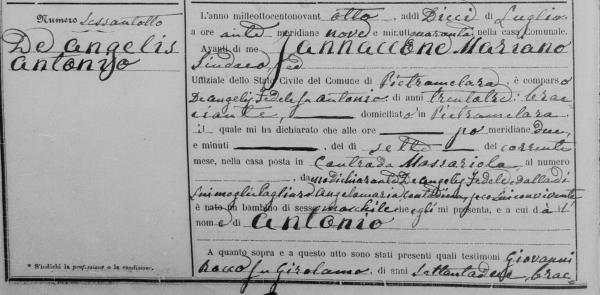 Numero Sessantotto
De Angelis
Antonio
L'anno milleottocentonovantotto, addì Dieci di Luglio
a ore antimeridiane nove e minuti quaranta, nella Casa comunale.
Avanti di me Iannaccone Mariano
Sindaco ed
Uffiziale dello Stato Civile del Comune di Pietramelara, è comparso
De Angelis Fedele fu Antonio, di anni trentatre, brac
ciante, domiciliato in Pietramelara
il quale mi ha dichiarato che alle ore pomeridiane due,
e minuti, del dì sette del corrente
mese, nella casa posta in Contrada Massariola al numero
, da me dichiarante De Angelis Fedele, e dalla di
lui moglie Pagliaro Angelamaria, contadina, seco lui convivente
è nato un bambino di sesso maschile che egli mi presenta, e a cui dà il
nome di Antonio
A quanto sopra e a questo atto sono stati presenti quali testimoni Giovanni
Rocco fu Girolamo, di anni, brac
* S'indichi la professione o la condizione.